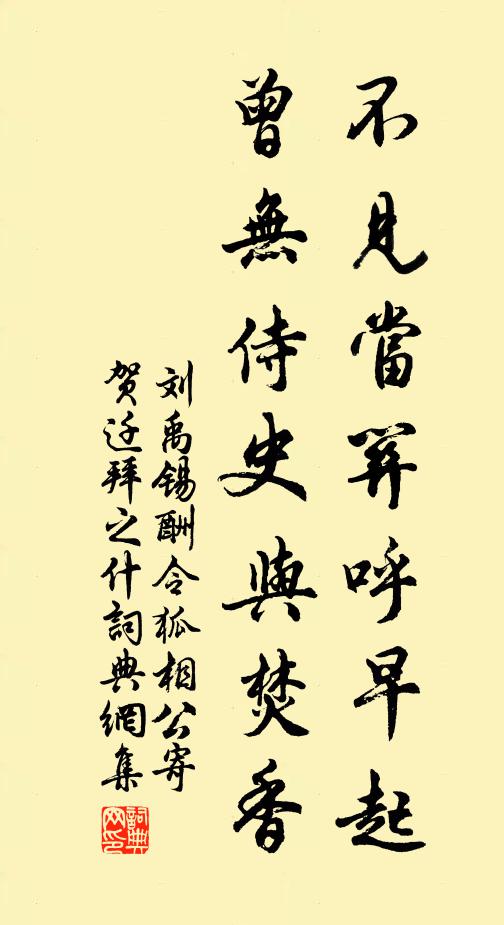 不見當關呼早起
曾無侍史與焚香
刘禹锡酬令狐相公寄
贺迁拜之什詞典網集
詞典
网印